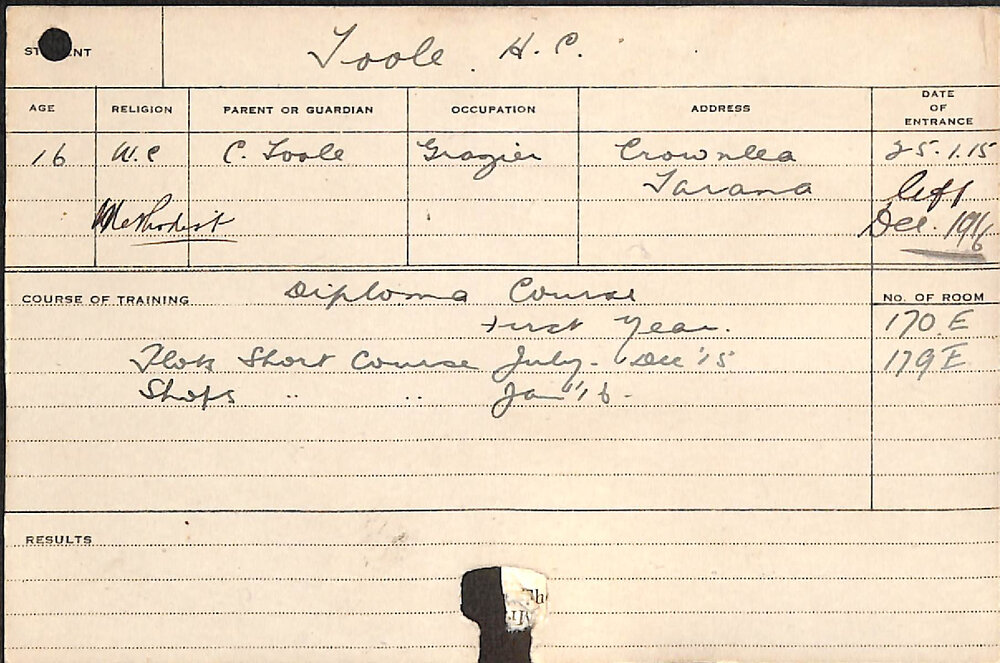 STUDENT Toole. H. C.
AGE RELIGION PARENT OR GUARDIAN OCCUPATION ADDRESS DATE OF ENTRANCE
16 C. Toole Grazier Crownlea 25.1.15
Tarana left
Methodist Dec. 1916
COURSE OF TRAINING Diploma Course No. OF ROOM
First Year. 170 E
Short Course July - Dec '15 179 E
" " Jan '16 -
RESULTS